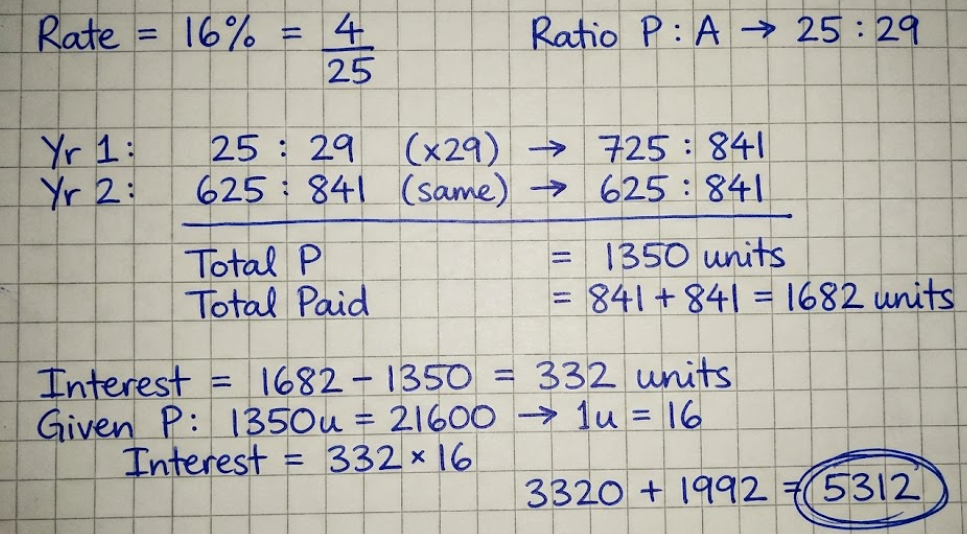 Rate = 16% = 4/25 Ratio P : A → 25 : 29
Yr 1: 25 : 29 (x29) → 725 : 841
Yr 2: 625 : 841 (same) → 625 : 841
Total P = 1350 units
Total Paid = 841 + 841 = 1682 units
Interest = 1682 - 1350 = 332 units
Given P: 1350u = 21600 → 1u = 16
Interest = 332 × 16
3320 + 1992 = 5312